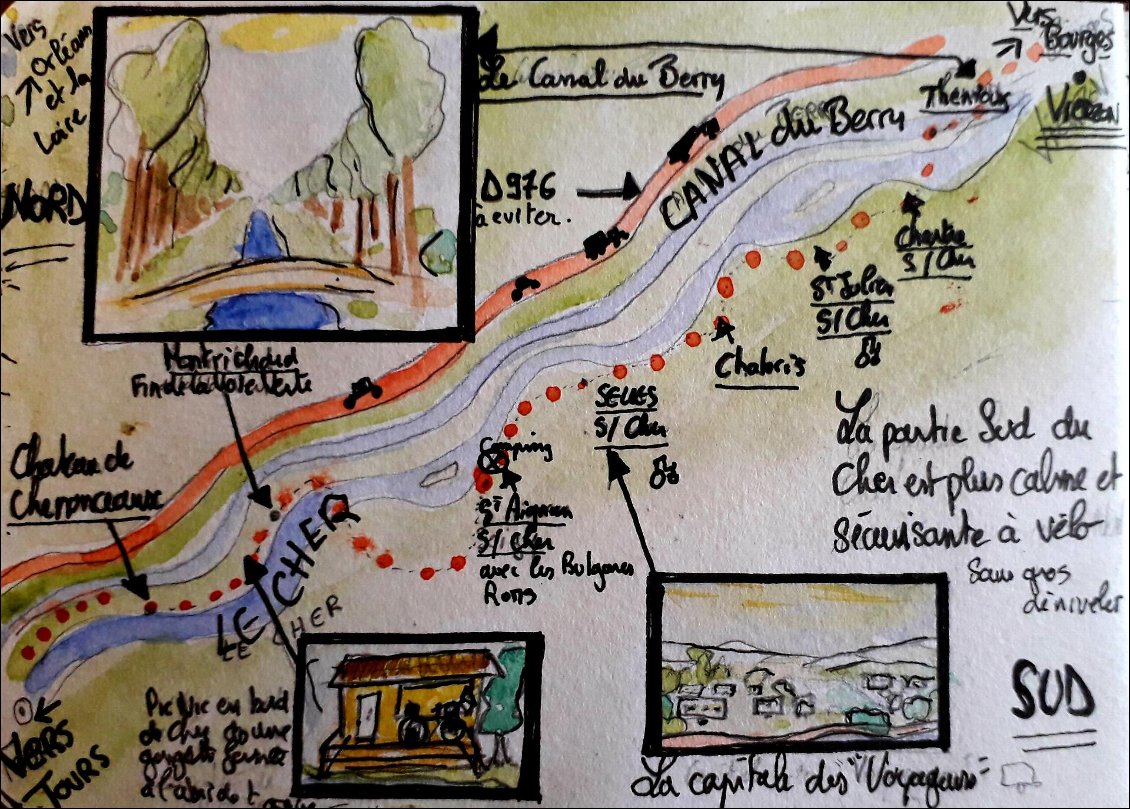 Vers
Orléans
et la
Loire
NORD
Le Canal du Berry
D976
à eviter.
CANAL du Berry
Vers
Bourges
Thenioux
VIERZON
Chartre
S/Cher
St Julien
S/Cher
Chabris
SELLES
S/Cher
Camping
St Aignan
S/Cher
avec les Bulgares
Roms
Montrichard
Fin de la Voie Verte
Chateau de
Chenonceaux
LE CHER
LE CHER
La partie Sud du
Cher est plus calme et
sécurisante à vélo
Sans gros
déniveler
SUD
Pic Nic en bord
de Cher
à l'abri
VERS
TOURS
La capitale des "Voyageurs"